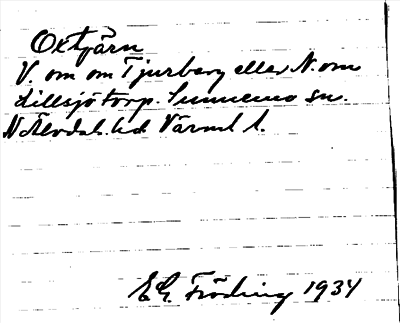 Oxtjärn
V. om om Tjurberg eller N. om
Lillsjötorp. Sunnemo sn.
N. Älvdals hd Värml l.
E G. Fröding 1934